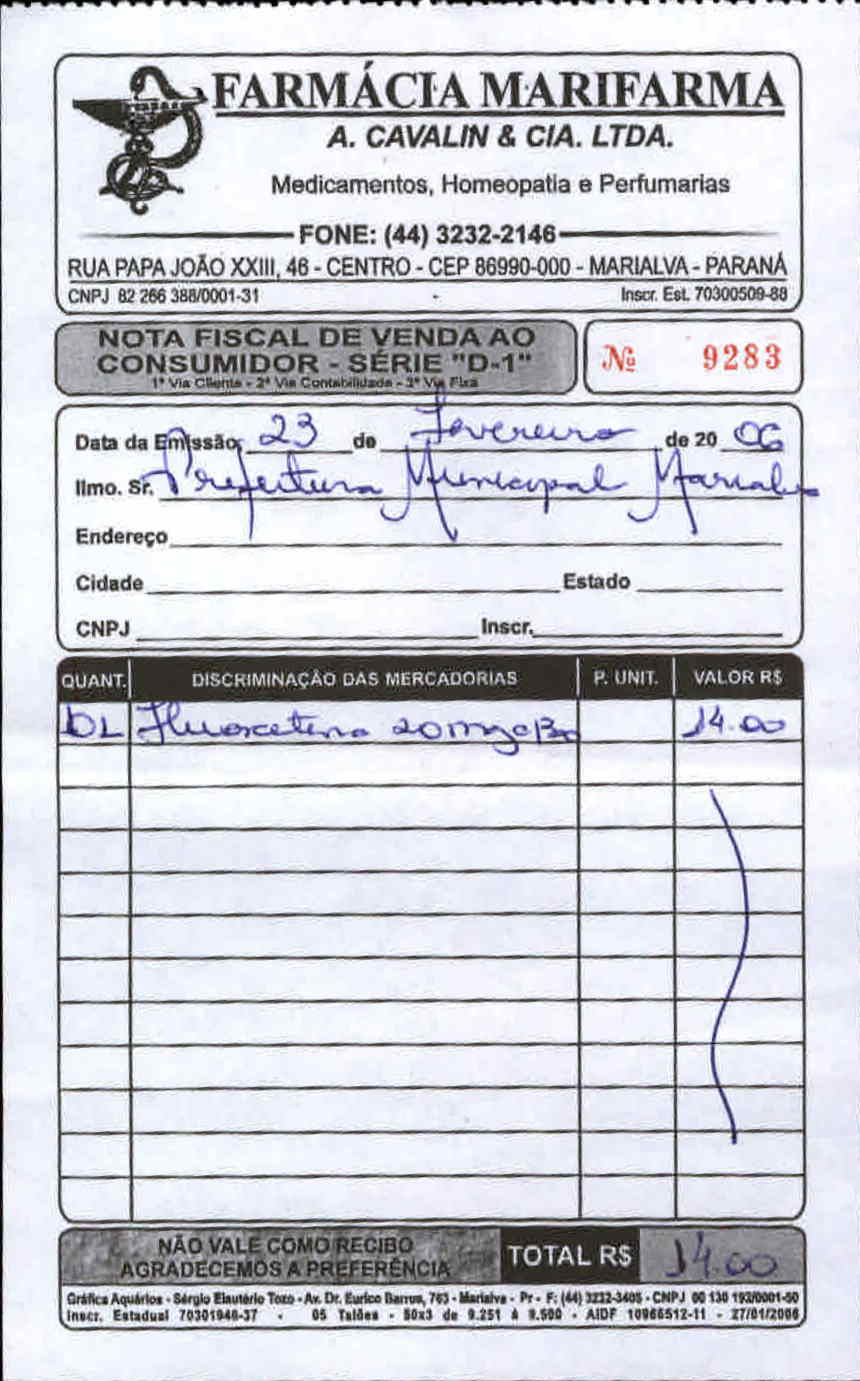 FARMÁCIA MARIFARMA
A. CAVALIN & CIA. LTDA.
Medicamentos, Homeopatia e Perfumarias
FONE: (44) 3232-2146
RUA PAPA JOÃO XXIII, 46 - CENTRO - CEP 86990-000 - MARIALVA - PARANÁ
CNPJ 82 266 388/0001-31 Inscr. Est. 70300509-88
NOTA FISCAL DE VENDA AO
CONSUMIDOR - SÉRIE "D-1"
1ª Via Cliente - 2ª Via Contabilidade - 3ª Via Fixa
Nº 9283
Data da Emissão, 23 de Fevereiro de 20 06
Ilmo. Sr. Prefeitura Municipal Marialva
Endereço
Cidade Estado
CNPJ Inscr.
QUANT. DISCRIMINAÇÃO DAS MERCADORIAS P. UNIT. VALOR R$
01 Fluoxetina 20mg 14.00
NÃO VALE COMO RECIBO
AGRADECEMOS A PREFERÊNCIA
TOTAL R$ 14.00
Gráfica Aquários - Sérgio Elautério Tozo - Av. Dr. Eurico Barros, 763 - Marialva - Pr - F: (44) 3232-3405 - CNPJ 00 130 193/0001-50
Inscr. Estadual 70301946-37 - 05 Talões - 50x3 de 9.251 à 9.500 - AIDF 10966512-11 - 27/01/2006